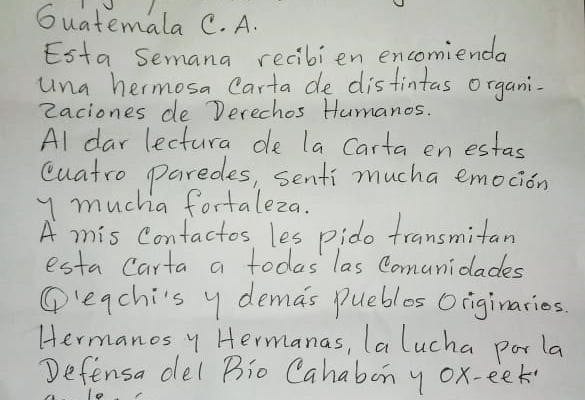 Guatemala C.A.
Esta Semana recibí en encomienda
una hermosa Carta de distintas organi-
zaciones de Derechos Humanos.
Al dar lectura de la Carta en estas
Cuatro paredes, sentí mucha emoción
y mucha fortaleza.
A mis Contactos les pido transmitan
esta Carta a todas las Comunidades
Q'eqchi's y demás Pueblos Originarios.
Hermanos y Hermanas, la lucha por la
Defensa del Río Cahabón y OX-eek'